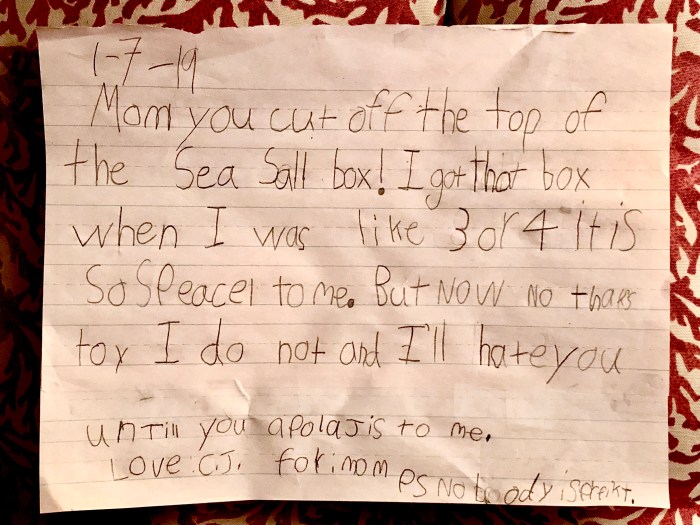 1-7-19
Mom you cut off the top of
the Sea Sall box! I got that box
when I was like 3 or 4 it is
So SPeacel to me. But NOW NO thaks
tox I do not and I'll hate you
unTill you apolaJis to me.
Love: C.J. for: mom
PS No body is